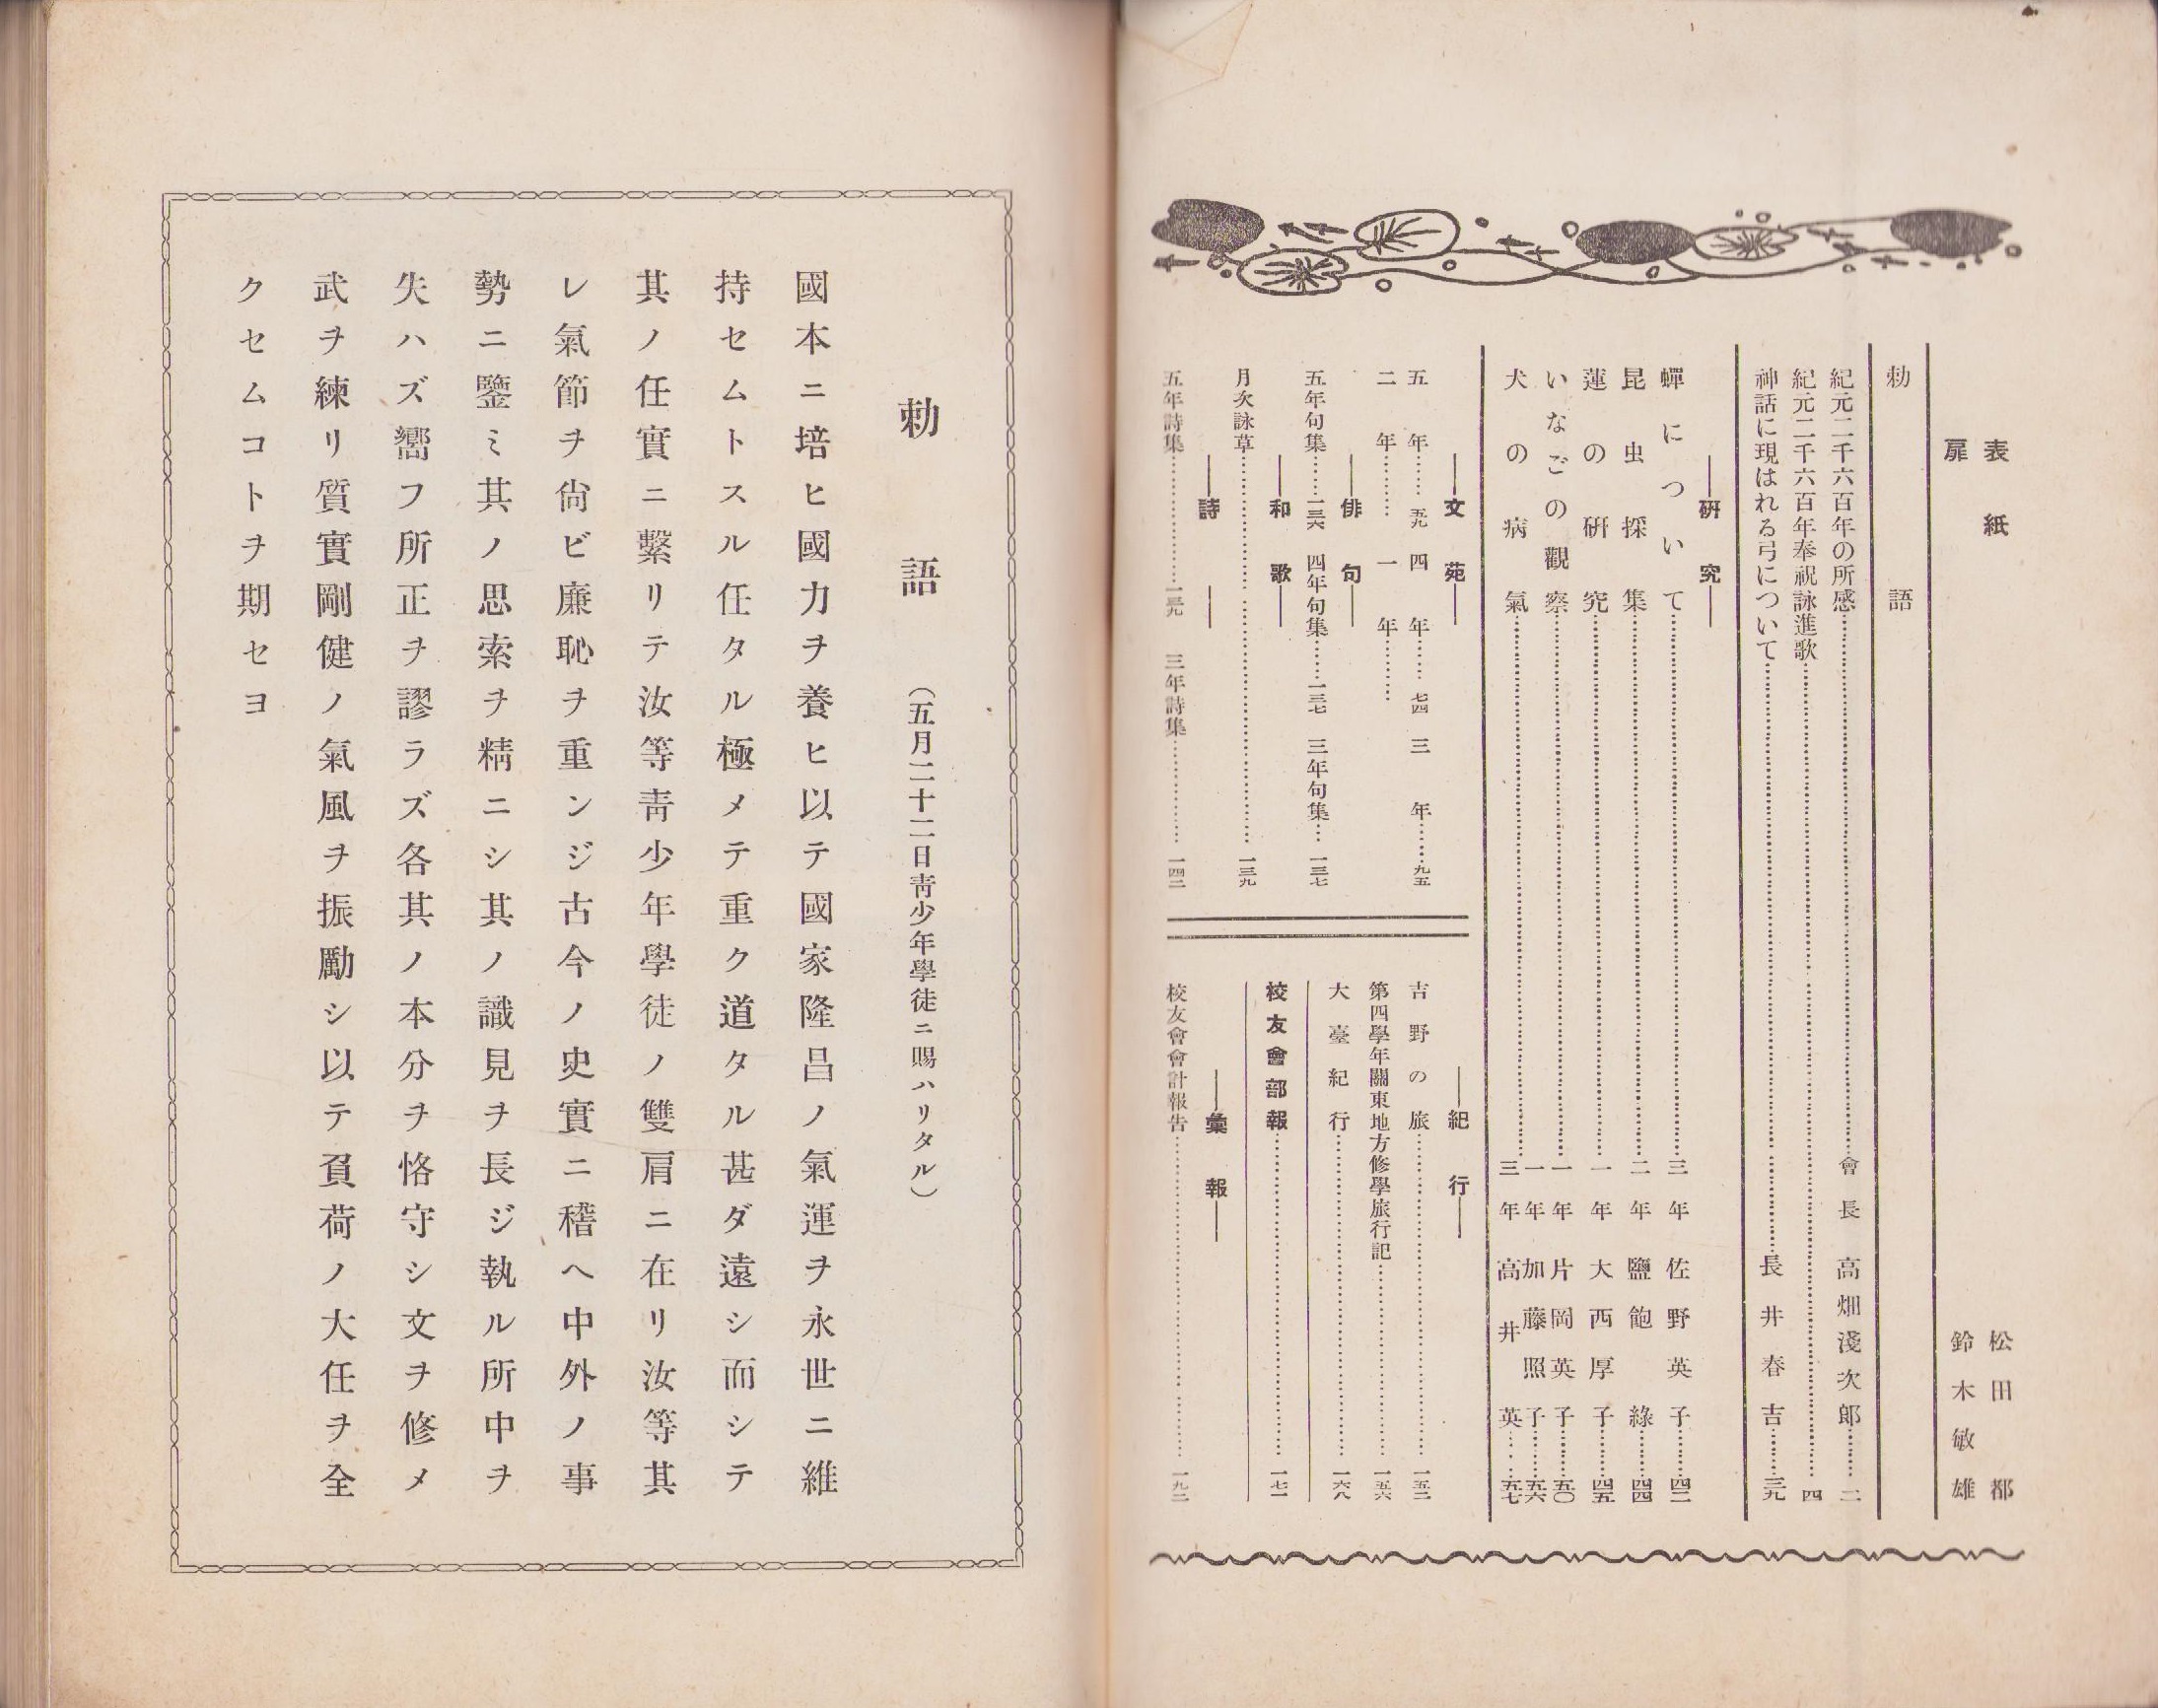 表紙 松田都
扉 鈴木敏雄
勅語
紀元二千六百年の所感…………會長 高畑淺次郎……二
紀元二千六百年奉祝詠進歌…………四
神話に現はれる弓について…………長井春吉……三九
――硏究――
蟬について…………三年 佐野英子……四二
昆虫採集…………二年 鹽飽綠……四四
蓮の硏究…………一年 大西厚子……四五
いなごの觀察…………一年 片岡英子……五〇
一年 加藤照子……五六
犬の病氣…………三年 高井英……五七
――文苑――
五年……五九 四年……七四 三年……九五
二年………… 一年…………
――俳句――
五年句集……一三六 四年句集……一三七 三年句集……一三七
――和歌――
月次詠草…………一三九
――詩――
五年詩集…………一三九 三年詩集…………一四二
――紀行――
吉野の旅…………一五二
第四學年關東地方修學旅行記…………一五六
大臺紀行…………一六八
校友會部報…………一七一
――彙報――
校友會會計報告…………一九二
勅語 (五月二十二日靑少年學徒ニ賜ハリタル)
國本ニ培ヒ國力ヲ養ヒ以テ國家隆昌ノ氣運ヲ永世ニ維
持セムトスル任タル極メテ重ク道タル甚ダ遠シ而シテ
其ノ任實ニ繫リテ汝等靑少年學徒ノ雙肩ニ在リ汝等其
レ氣節ヲ尙ビ廉恥ヲ重ンジ古今ノ史實ニ稽ヘ中外ノ事
勢ニ鑒ミ其ノ思索ヲ精ニシ其ノ識見ヲ長ジ執ル所中ヲ
失ハズ嚮フ所正ヲ謬ラズ各其ノ本分ヲ恪守シ文ヲ修メ
武ヲ練リ質實剛健ノ氣風ヲ振勵シ以テ負荷ノ大任ヲ全
クセムコトヲ期セヨ